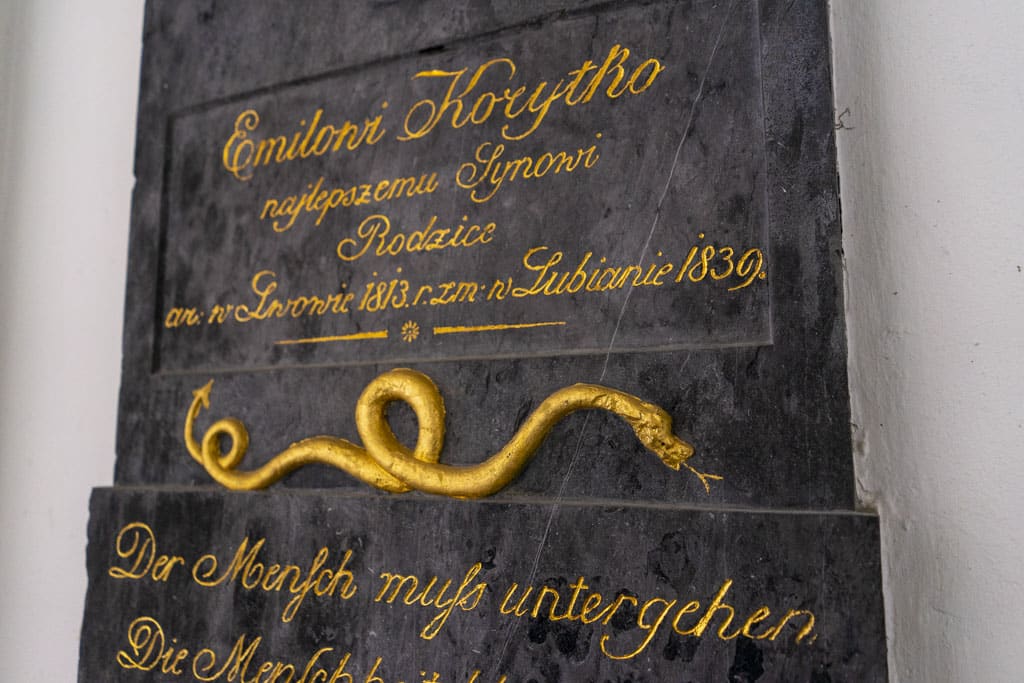 Emilowi Korytko
najlepszemu Synowi
Rodzice
ur: w Lwowie 1813. r. zm: w Lubianie 1839.
Der Menſch muſs untergehen
Die Menſchheit